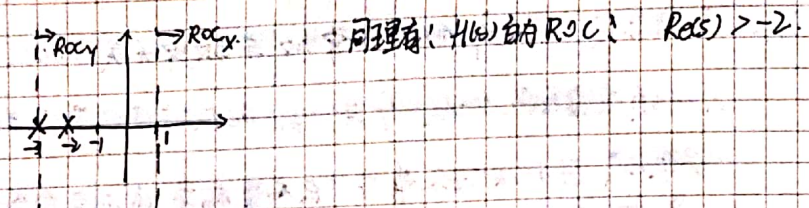 ROCy
ROCx.
同理有: H(s)的ROC: Re(s) > -2.
-2 -1 1